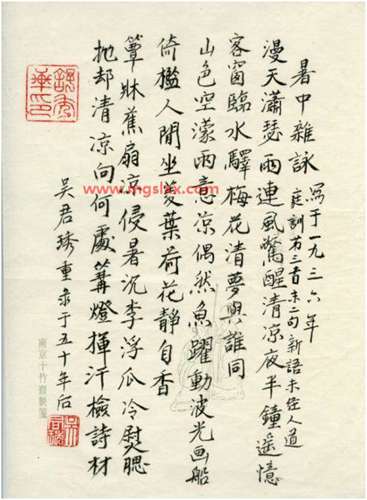 暑中雜詠
寫于一九三六年
庭訓有三首末二句新語未經人道
漫天瀟瑟雨連風驚醒清涼夜半鐘遥憶
客窗臨水驛梅花清夢與誰同
山色空濛雨意涼偶然魚躍動波光畫船
倚檻人閒坐菱葉荷花靜自香
簟牀蕉扇涼侵暑沉李浮瓜冷熨腮
抛却清涼向何處篝燈揮汗檢詩材
吳君琇重录于五十年后
南京十竹齋製箋
www.mgslyx.com